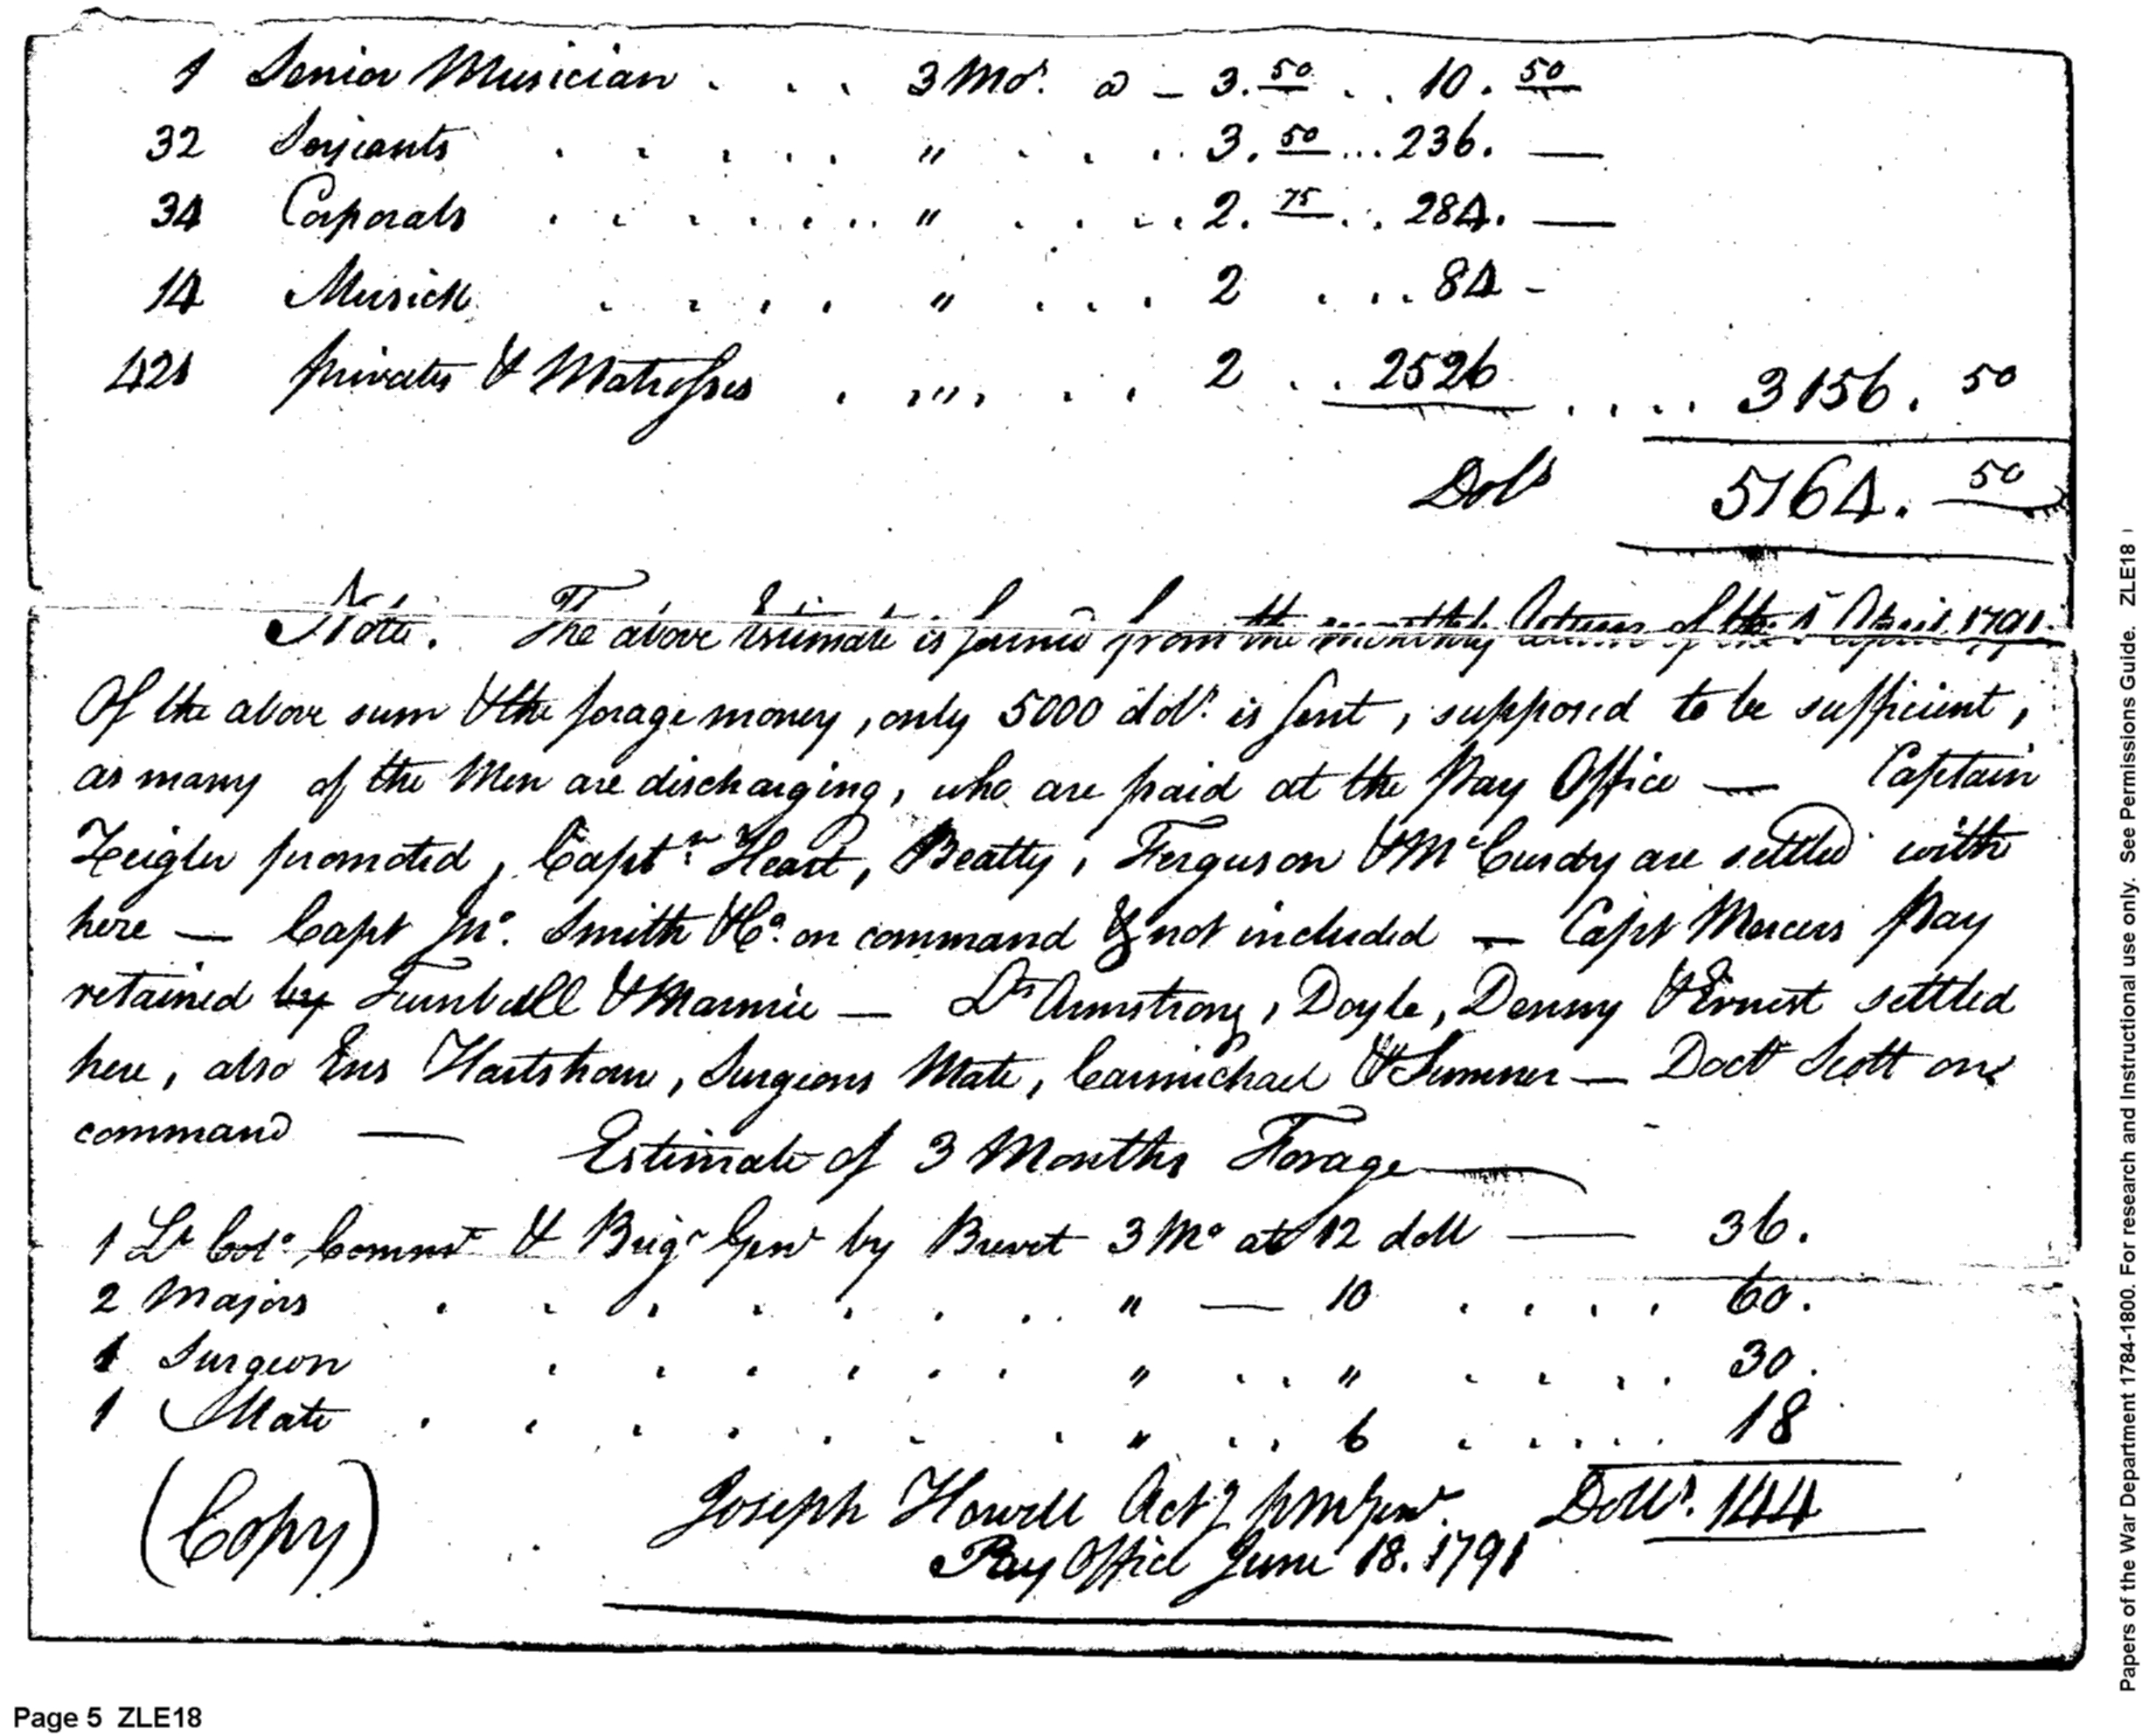 1 Senior Musician . . . 3 Mos. @ — 3.50 . . 10.50
32 Serjeants . . . . . " . . . . 3.50 ... 236. —
34 Corporals . . . . . . . " . . . . 2.75 . . . 284. —
14 Musick . . . . " . . . 2 . . . . 84 -
421 privates & Matrosses . " . . . 2 . . . 2526 . . . . 3156. 50
Dols 5164. 50
Note. The above Estimate is formed from the monthly Return of the 1st April 1791.
Of the above sum & the forage money, only 5000 dolls. is sent, supposed to be sufficient,
as many of the Men are discharging, who are paid at the Pay Office — Captain
Zeigler promoted, Captns Heart, Beatty, Ferguson & McCurdy are settled with
here — Capt Jno. Smith & Co. on command & not included — Capt Mercers Pay
retained by Turnbull & Marmie — Lts Armstrong, Doyle, Denny & Ernest settled
here, also Ens Hartshorn, Surgeons Mate, Carmichael & Sumner — Doctr Scott on
command —
Estimate of 3 Months Forage
1 Lt Colo. Commt & Brigr Genl by Brevet 3 Mo at 12 doll — 36.
2 Majors . . . . . . . . " — 10 . . . . 60.
1 Surgeon . . . . . . " . . . " . . . . . 30.
1 Mate . . . . . . . . " . . . 6 . . . . . . 18
(Copy)
Joseph Howell Actg PMGenl. Dolls. 144
Pay Office June 18. 1791
Papers of the War Department 1784-1800. For research and Instructional use only. See Permissions Guide. ZLE18
Page 5 ZLE18